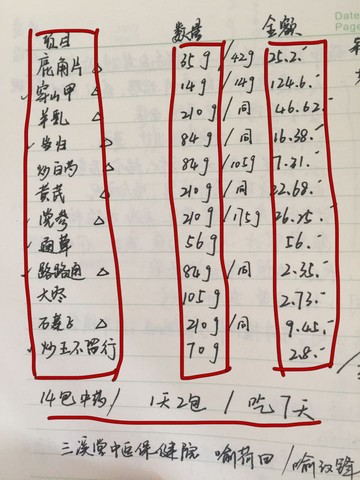 项目 数量 金额
鹿角片 △ 35g /42g 25.2.-
穿山甲 14g /14g 124.6.-
羊乳 △ 210g /同 46.62.-
当归 84g /同 16.38.-
炒白芍 84g /105g 7.31.-
黄芪 210g /同 22.68.-
党参 △ 210g /175g 26.25.-
通草 56g 56.-
路路通 △ 84g /同 2.35.-
大枣 105g 2.73.-
石菱飞 △ 210g /同 9.45.-
炒王不留行 70g 2.8.-
14包中药/ 1天2包 / 吃7天
三溪堂中医保健院 喻荷田 /喻汉锋
Date
Page